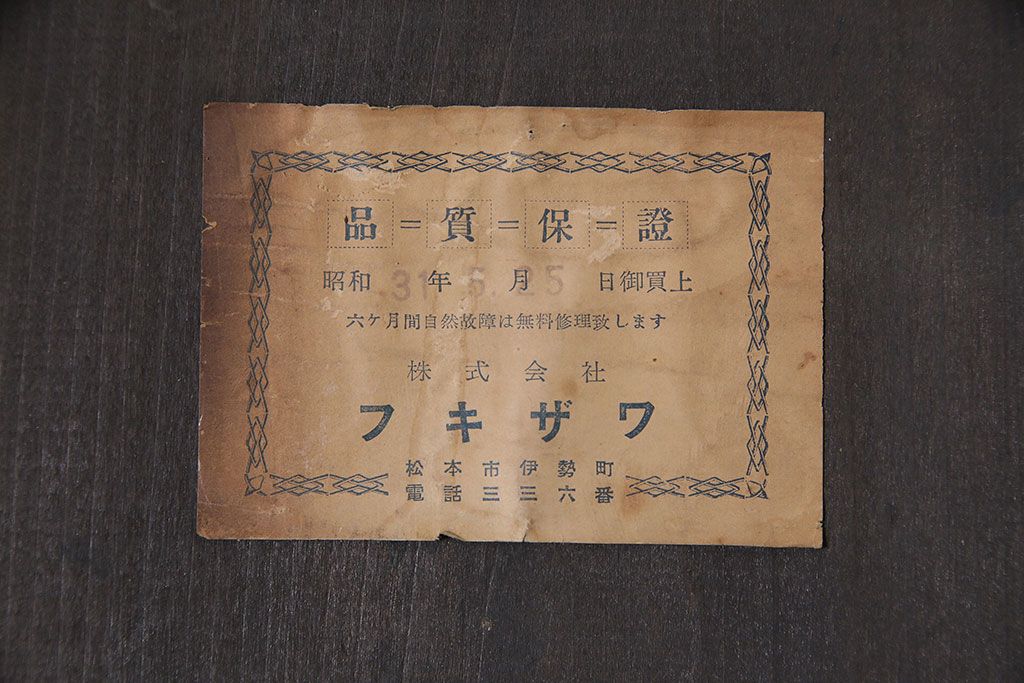 品=質=保=證
昭和 31年 5. 月 25 日御買上
六ヶ月間自然故障は無料修理致します
株式会社
フキザワ
松本市伊勢町
電話三三六番